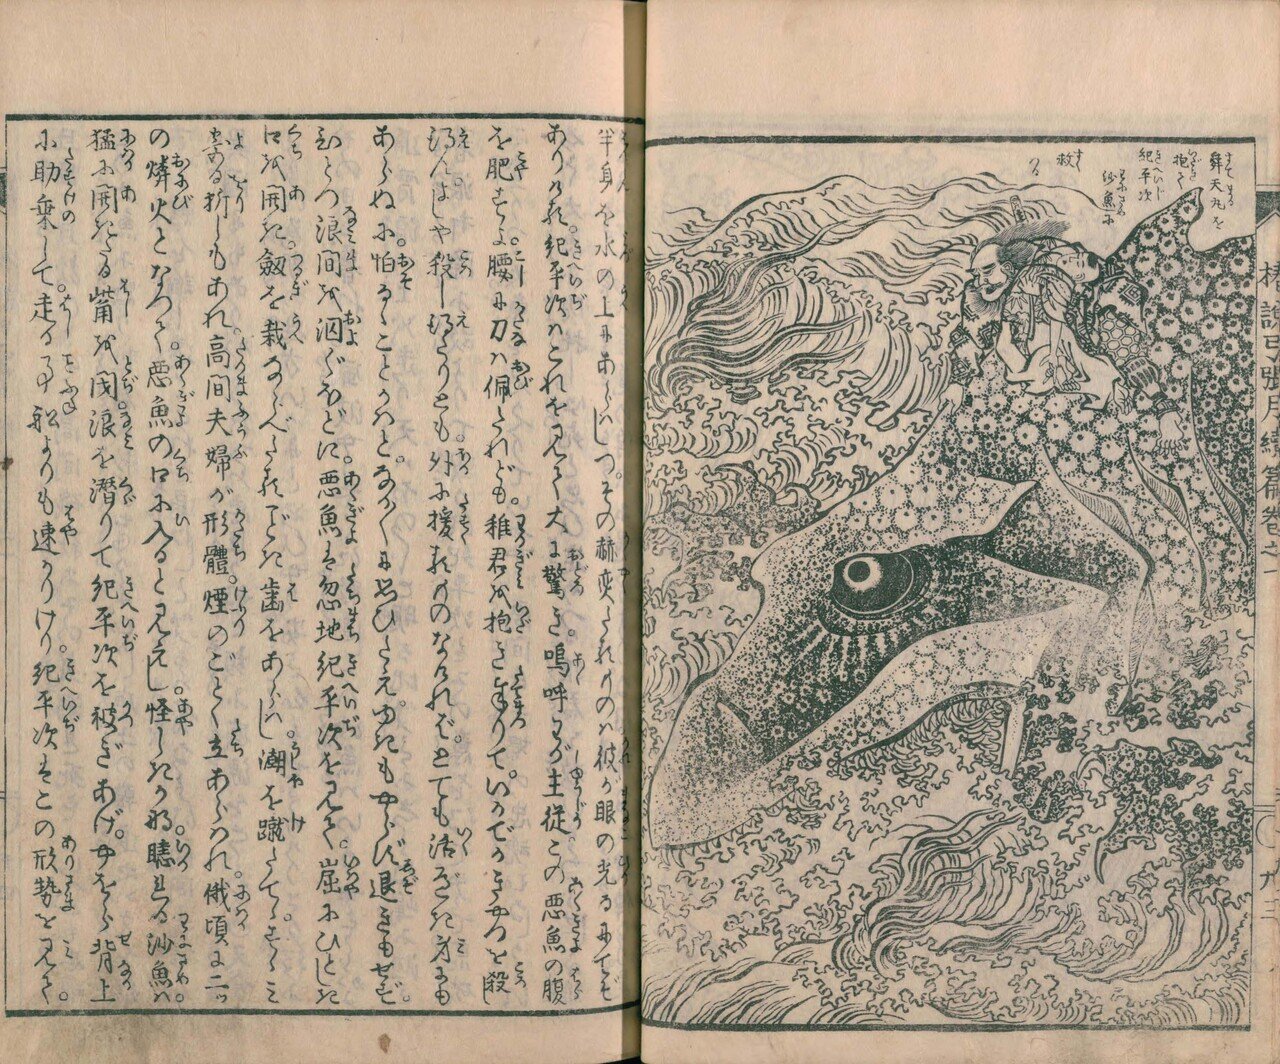 舜天丸を
抱て
紀平次
沙魚に
救
る
椿説弓張月續篇巻之一
半身を水の上にあらはしつ。その赫奕たるものは彼が眼の光るにてぞ
ありける。紀平次はこれを見て大に驚き。嗚呼わが主従この悪魚の腹
を肥すよ。腰に刀は佩たれども。稚君を抱きまゐりて。いかでかきやつを殺し
得ん。よしや殺し得たりとも外に援るものなければとても活がたき身にも
あらぬに。怕るゝことかはと。なか〳〵に思ひたえ。ゆきもやらず退きもせず
ひとつ浪間を泅ぐほどに悪魚は忽地紀平次を見て。窟にひとしき
口を開き劔を栽ならべたるごとき歯をあらはし。潮を蹴たて。すゝみ
寄る折しもあれ高間夫婦が形體。煙のごとく立あらはれ。俄頃に二ッ
の燐火となりて。悪魚の口に入ると見えし。怪しきかな。騰れる沙魚は
猛に開きたる觜を閉。浪を潜りて紀平次を被ぎあげ。やをら背上
に助乗して。走る事船よりも速かりけり。紀平次はこの形勢を見て。